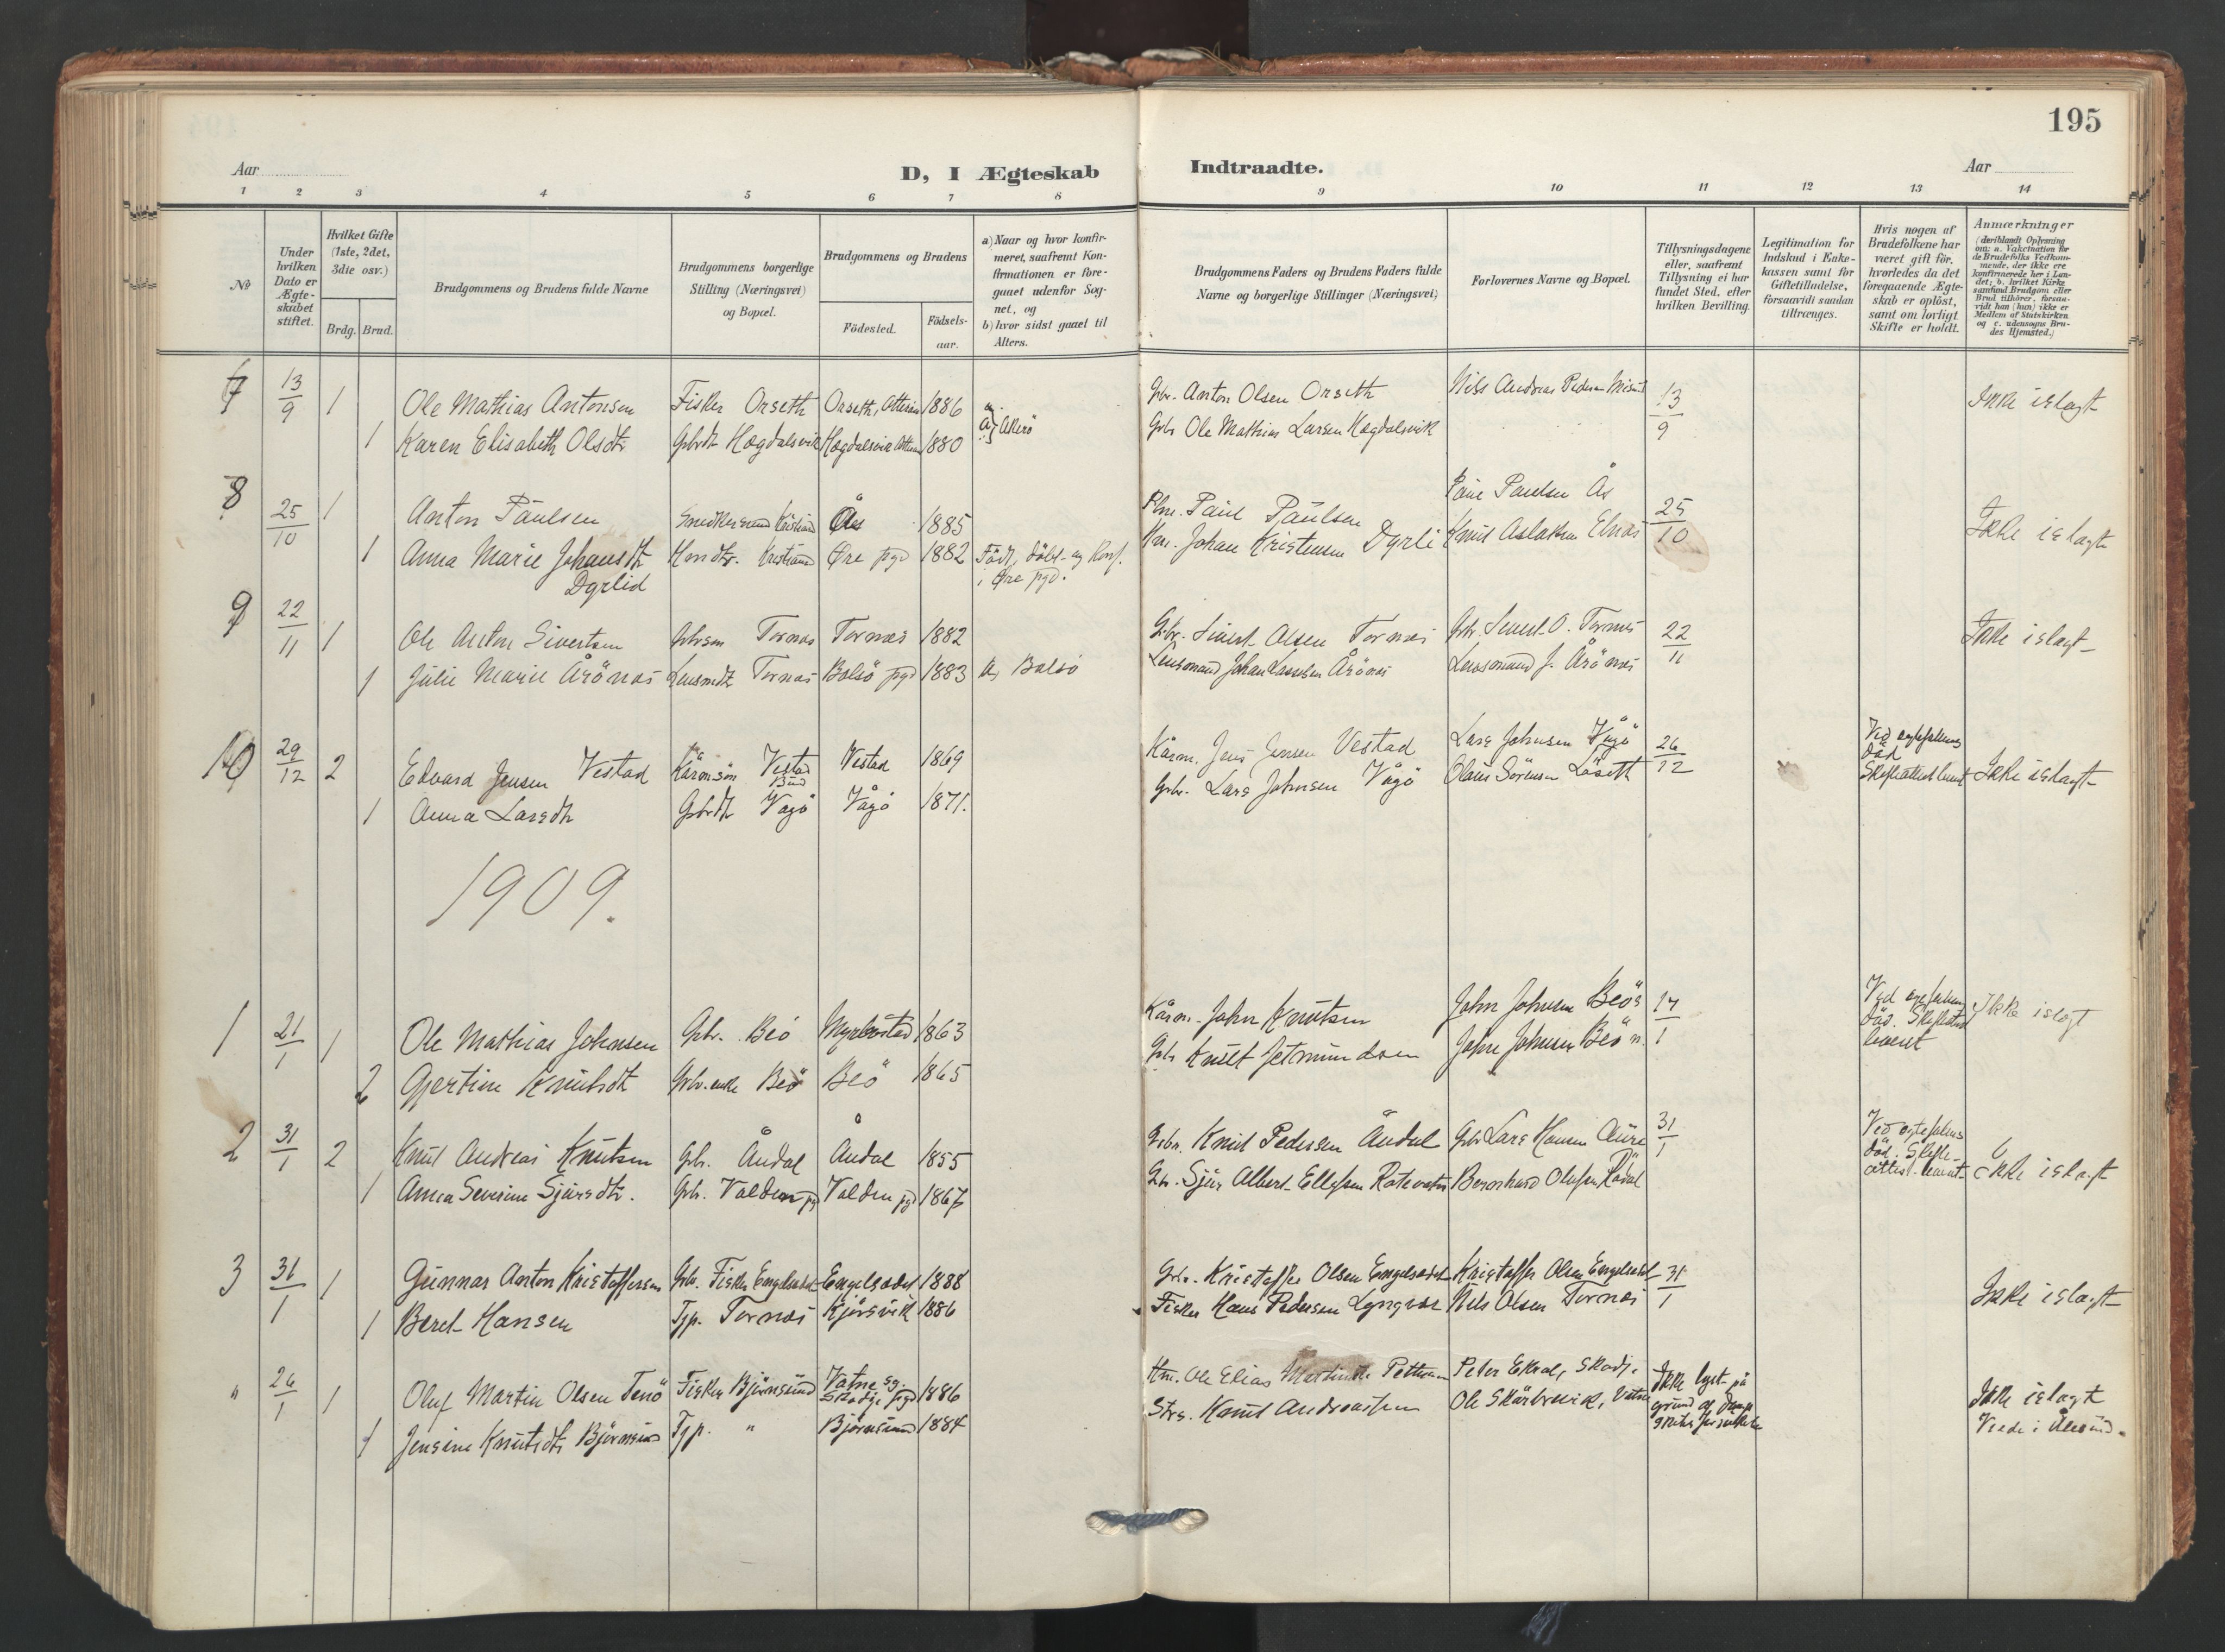 195
Aar
D, I Ægteskab Indtraadte.
Aar
1 2 3 4 5 6 7 8 9 10 11 12 13 14
№
Under hvilken Dato er Ægteskabet stiftet.
Hvilket Gifte (1ste, 2det, 3die osv.)
Brdg. Brud.
Brudgommens og Brudens fulde Navne
Brudgommens borgerlige Stilling (Næringsvei) og Bopæl.
Brudgommens og Brudens
Födested.
Födselsaar.
a) Naar og hvor konfirmeret, saafremt Konfirmationen er foregaaet udenfor Sognet, og
b) hvor sidst gaaet til Alters.
Brudgommens Faders og Brudens Faders fulde Navne og borgerlige Stillinger (Næringsvei)
Forlovernes Navne og Bopæl.
Tillysningsdagene eller, saafremt Tillysning ei har fundet Sted, efter hvilken Bevilling.
Legitimation for Indskud i Enkekassen samt for Giftetilladelse, forsaavidt saadan tiltrænges.
Hvis nogen af Brudefolkene har været gift för, hvorledes da det foregaaende Ægteskab er oplöst, samt om lovligt Skifte er holdt.
Anmærkninger
(deriblandt Oplysning om: a. Vakcination for de Brudefolks Vedkommende, der ikke ere konfirmerede her i Landet; b. hvilket Kirkesamfund Brudgom eller Brud tilhörer, forsaavidt han (hun) ikke er Medlem af Statskirken og c. udensogns Brudes Hjemsted.)
7 13/9 1 Ole Mathias Antonsen Fisker Orseth Orseth, 1886 Gbr. Anton Olsen Orseth Nils Andreas Pedersen 13/9 Ikke islagt
1 Karen Elisabeth Olsdtr Gbrdtr Hægdalsvik Hægdalsvik 1880 a) Akerö Gbr Ole Mathias Larsen Hægdalsvik
8 25/10 1 Anton Paulsen Kristiansund Ås 1885 Paul Paulsen Paul Paulsen Ås 25/10 Ikke islagt
1 Anna Marie Johansdtr Dyrlid Kristiansund Øre pgd 1882 Född, döbt og Konf. i Øre pgd. Hm. Johan Kristensen Dyrli Knut Aslaksen Elnæs
9 22/11 1 Ole Anton Sivertsen Gbrsøn Tornæs Tornæs 1882 Gbr. Sivert Olsen Tornæs Gbr. Sivert O. Tornæs 22/11 Ikke islagt
1 Julie Marie Årönæs Lensmdtr Tornæs Bolsö pgd 1883 a) Bolsö Lensmand Johan Årönæs Lensmand J. Årönæs
10 29/12 2 Edvard Jensen Vestad Kårmsön Vestad Bud Vestad 1869 Kårm. Jens Jensen Vestad Lars Johnsen Vågö 26/12 Ved ægtefællens död Ikke islagt
1 Anna Larsdtr Gbrdtr Vågö Vågö 1871. Gbr. Lars Johnsen Vågö Olaus Sörensen Löseth
1909.
1 21/1 1 Ole Mathias Johnsen Gbr. Beö Myrbostad 1863 Kårm. John Knutsen John Johnsen Beö 17/1 Ved ægtefællens död. Ikke islagt
2 Gjertine Knutsdtr Gbr.enke Beö Beö 1865 Gbr Knut Jetmundsen John Johnsen Beö
2 31/1 2 Knut Andreas Knutsen Gbr. Åndal Åndal 1855 Gbr. Knut Pedersen Åndal Gbr Lars Hansen Aure 31/1 Ved ægtefællens död. Skifteattest Ikke islagt
1 Anna Severine Sjursdtr. Gbr. Volden pgd Volden pgd 1867 Gbr. Sjur Albert Ellefsen Bernhard Olufsen
3 31/1 1 Gunnar Anton Kristoffersen Gbr. Fisker Engelsædet Engelsædet 1888 Gbr. Kristoffer Olsen Engelsædet Kristoffer Olsen Engelsædet 31/1 Ikke islagt
1 Beret Hansen Tjp. Tornæs Kjörsvik 1886 Fisker Hans Pedersen Lyngvær Nils Olsen Tornæs
" 26/1 1 Oluf Martin Olsen Tenö Fisker Björnsund Vatne sg. Skodje pgd 1886 Hm. Ole Elias Peter Ekrol, Skodj. Ikke lyst på grund af Ikke islagt
1 Jensine Knutsdtr Björnsund Tjp. " Björnsund 1884 Knut Andreassen Ole Viede i Ålesund.